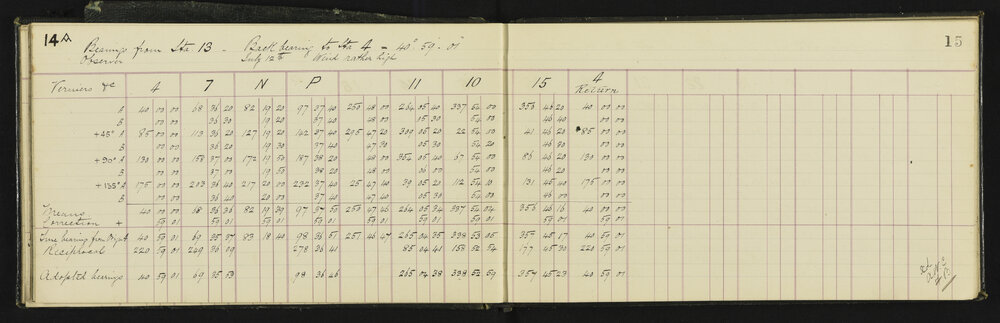 14A
15
Bearings from Sta 13 - Back bearing to Sta 4 = 40° 59' 01"
Observer July 12th Wind rather high
Verniers &c 4 7 N P 11 10 15 4 Return
A 40 00 00 68 36 20 82 19 20 97 37 40 250 48 00 264 05 40 337 54 00 356 46 20 40 00 00
B 00 00 36 30 19 20 37 40 48 00 05 30 54 00 46 40 00 00
+45° A 85 00 00 113 36 20 127 19 20 142 37 40 295 47 20 309 05 20 22 54 00 41 46 20 85 00 00
B 00 00 36 20 19 30 37 40 47 30 05 30 54 20 46 20 00 00
+90° A 130 00 00 158 37 00 172 19 50 187 38 20 48 00 354 05 40 67 54 00 86 46 20 130 00 00
B 00 00 37 00 19 50 38 20 48 00 06 00 54 00 46 00 00 00
+135° A 175 00 00 203 36 40 217 20 00 232 37 40 25 47 40 39 05 20 112 54 10 131 45 40 175 00 00
B 00 00 36 40 20 00 37 40 47 40 05 30 54 00 46 00 00 00
Means 40 00 00 68 36 36 82 19 39 97 37 50 250 47 46 264 05 34 337 54 04 356 46 16 40 00 00
Correction + 59 01 59 01 59 01 59 01 59 01 59 01 59 01 59 01 59 01
True bearing from 40 59 01 69 35 37 83 18 40 98 36 51 251 46 47 265 04 35 338 53 05 357 45 17 40 59 01
Reciprocal 220 59 01 249 36 09 278 36 41 85 04 41 158 52 54 177 45 30 220 59 01
Adopted bearings 40 59 01 69 35 53 98 36 46 265 04 38 338 52 59 357 45 23 40 59 01